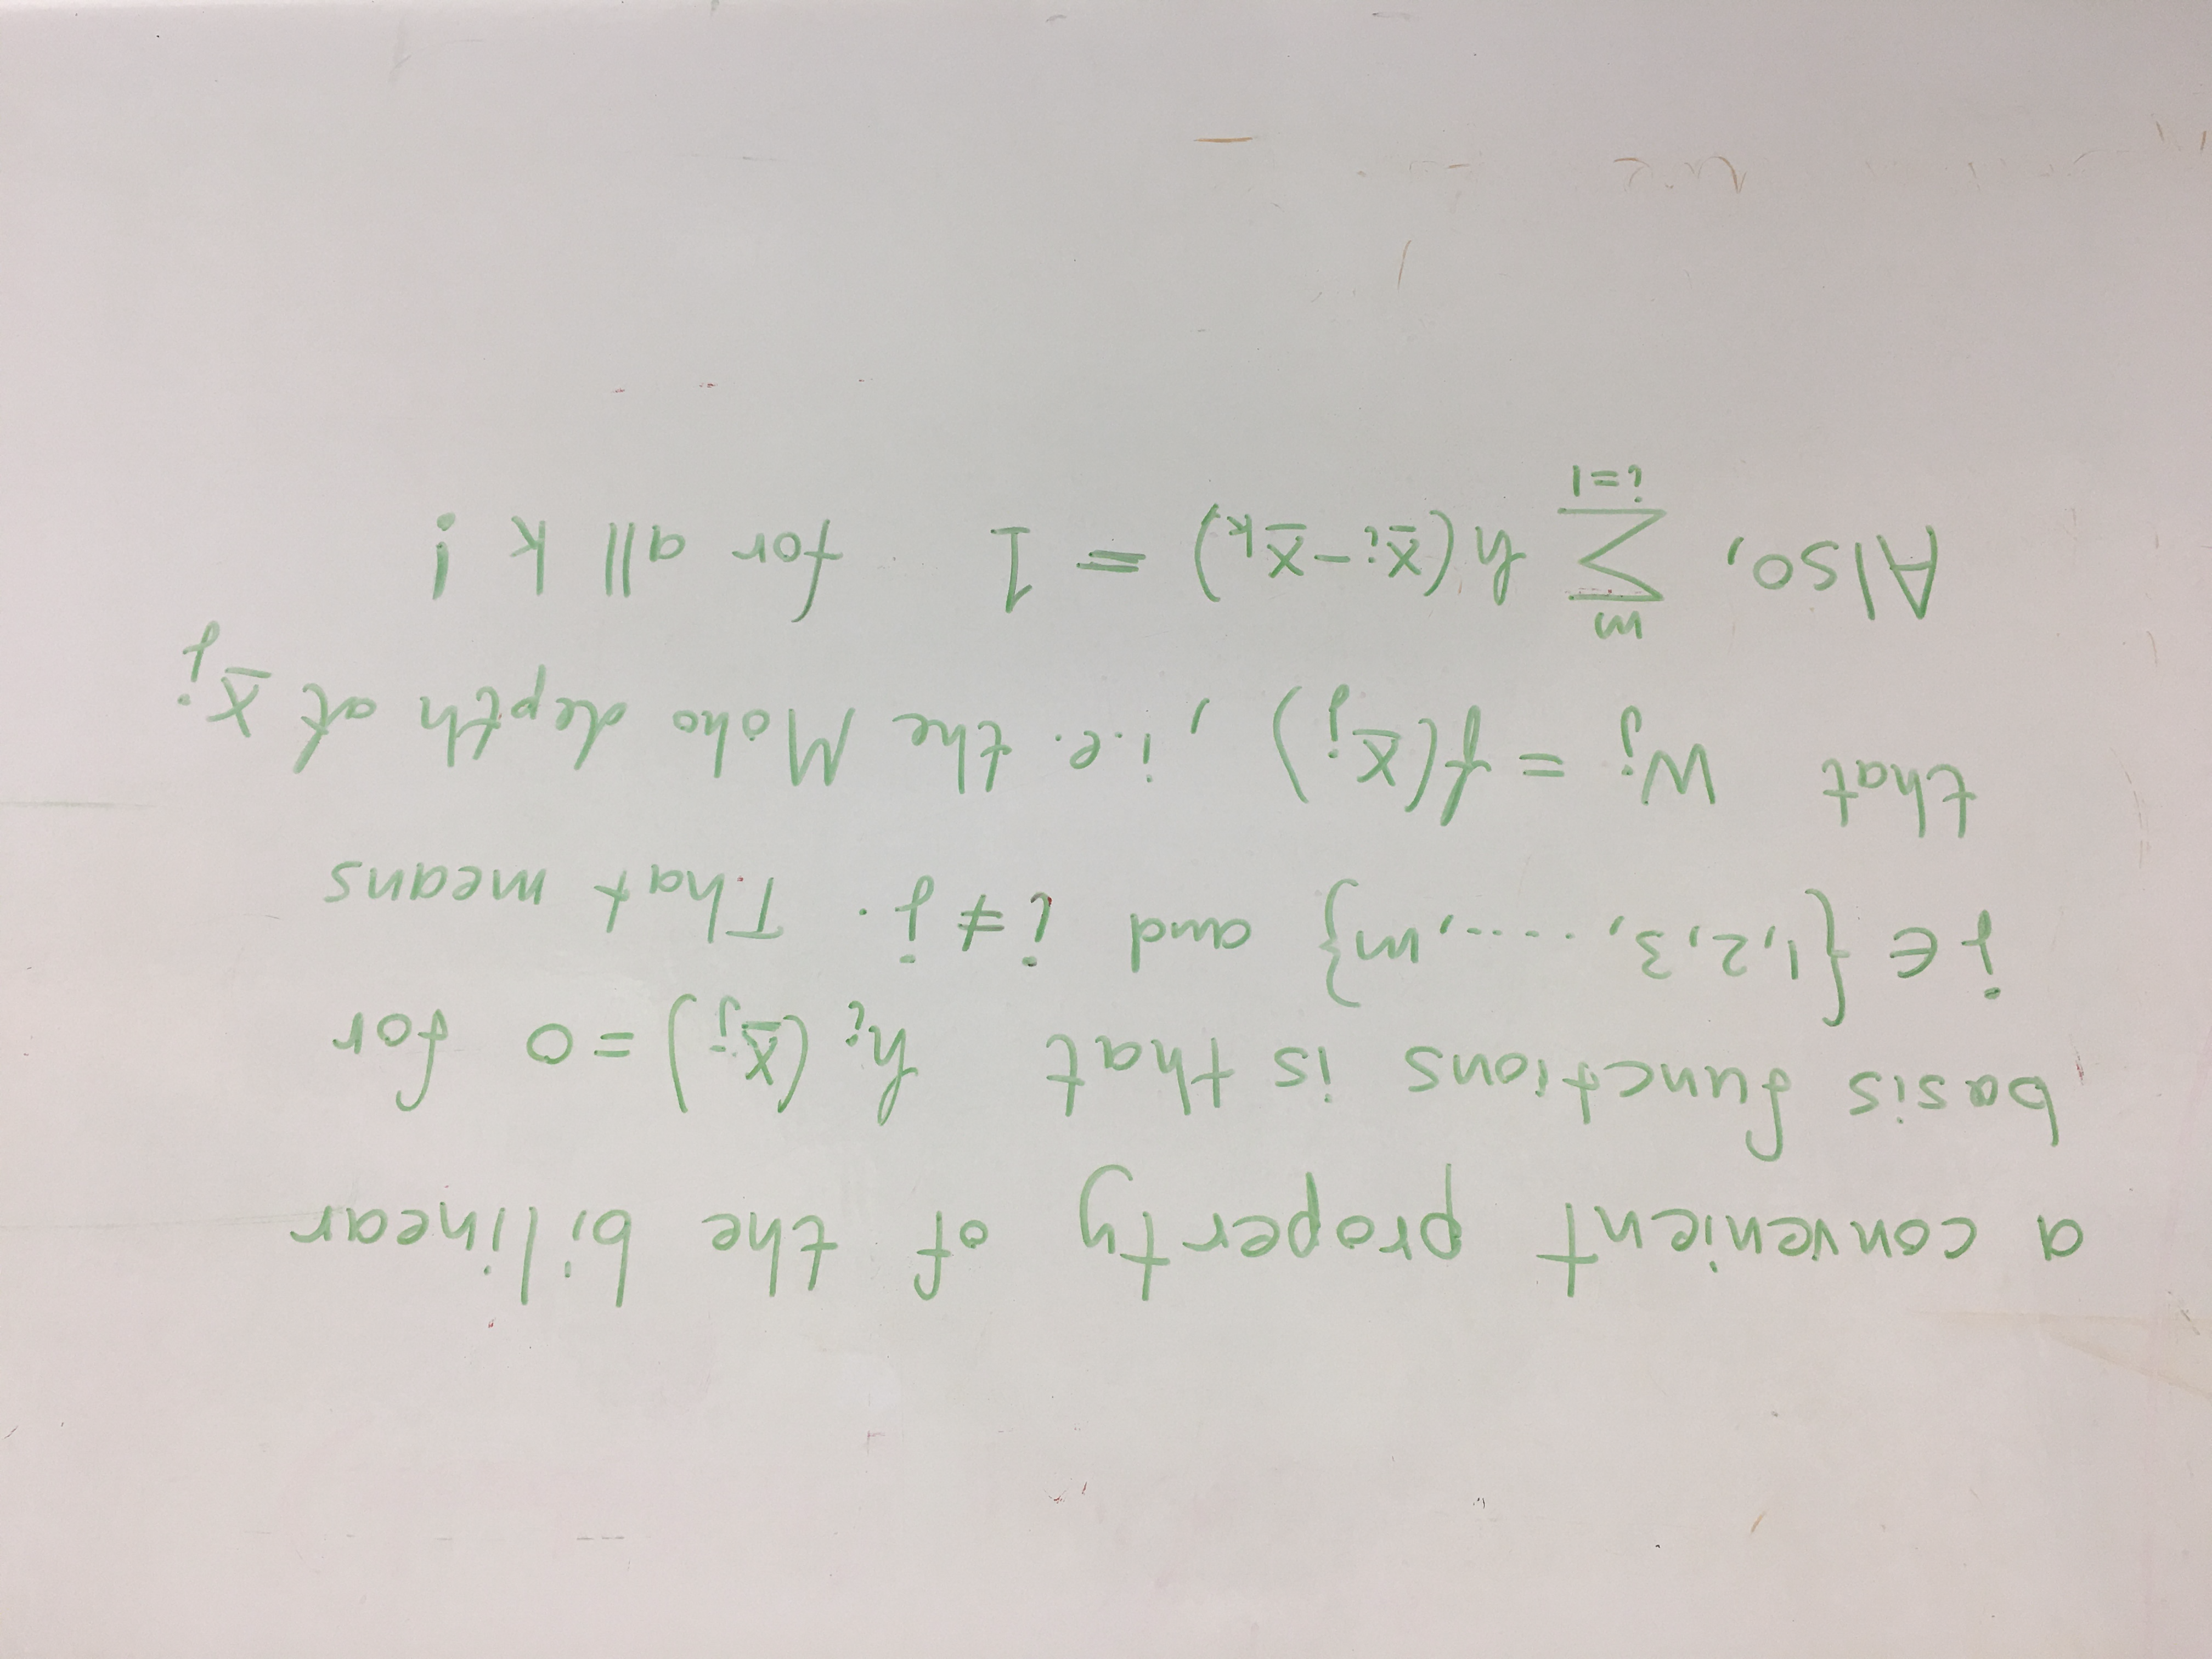 a convenient property of the bilinear
basis functions is that hᵢ(x̄ⱼ) = 0 for
j ∈ {1,2,3, ....,m} and i ≠ j. That means
that Wⱼ = f(x̄ⱼ), i.e. the Moho depth at x̄ⱼ
Also, ∑ᵢ₌₁ᵐ h(x̄ᵢ - x̄ₖ) = 1 for all k !